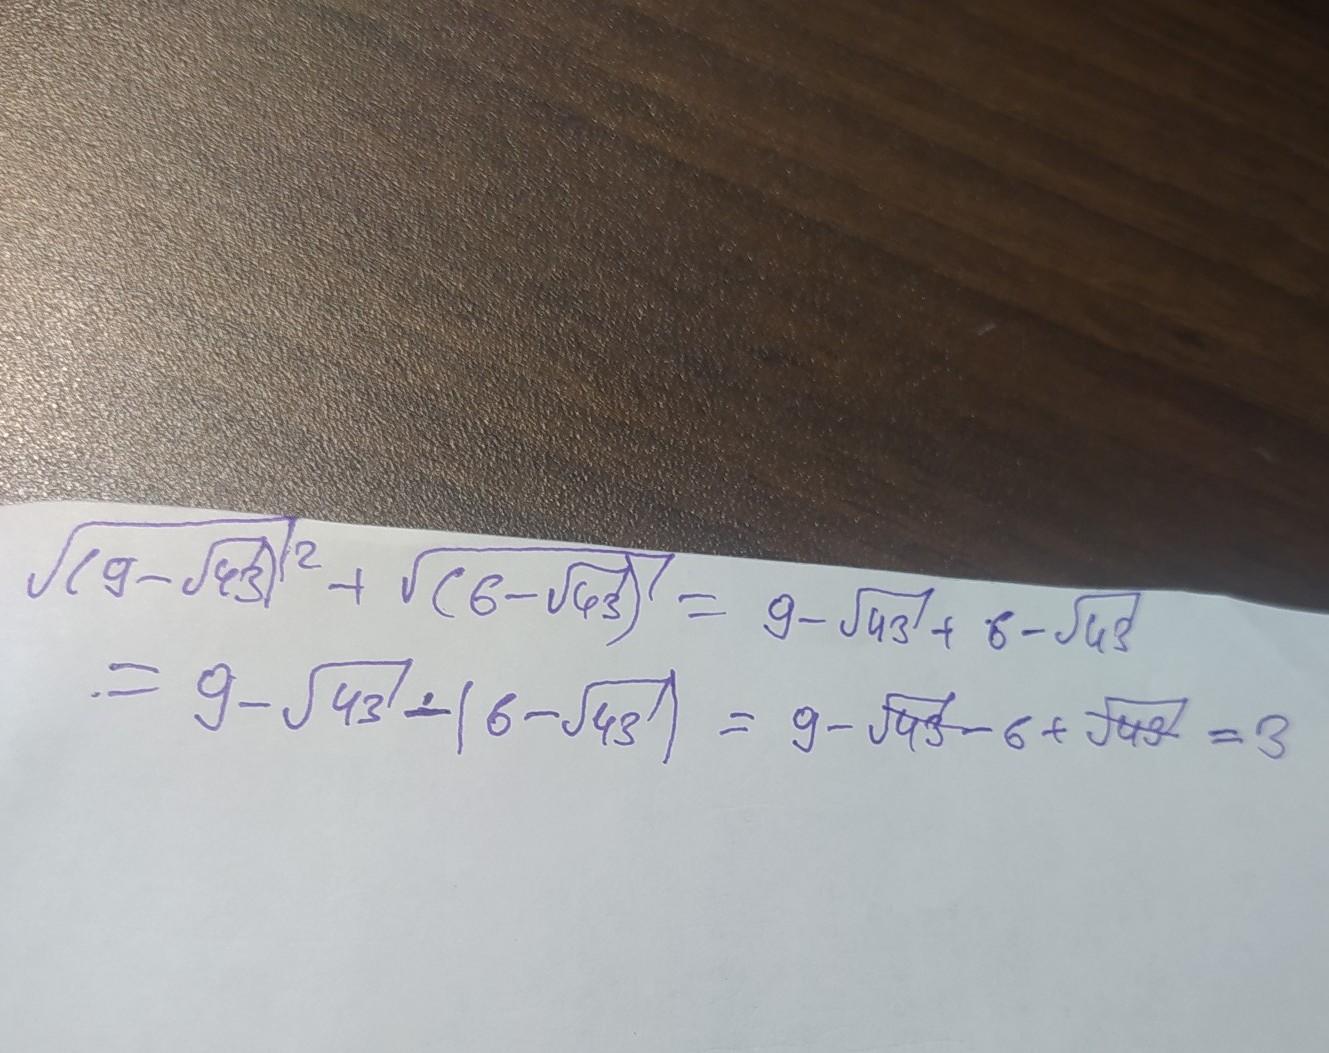 √(9-√43)² + √(6-√43) = 9-√43 + 6-√43
= 9-√43 -(6-√43) = 9-√43-6+√43 = 3